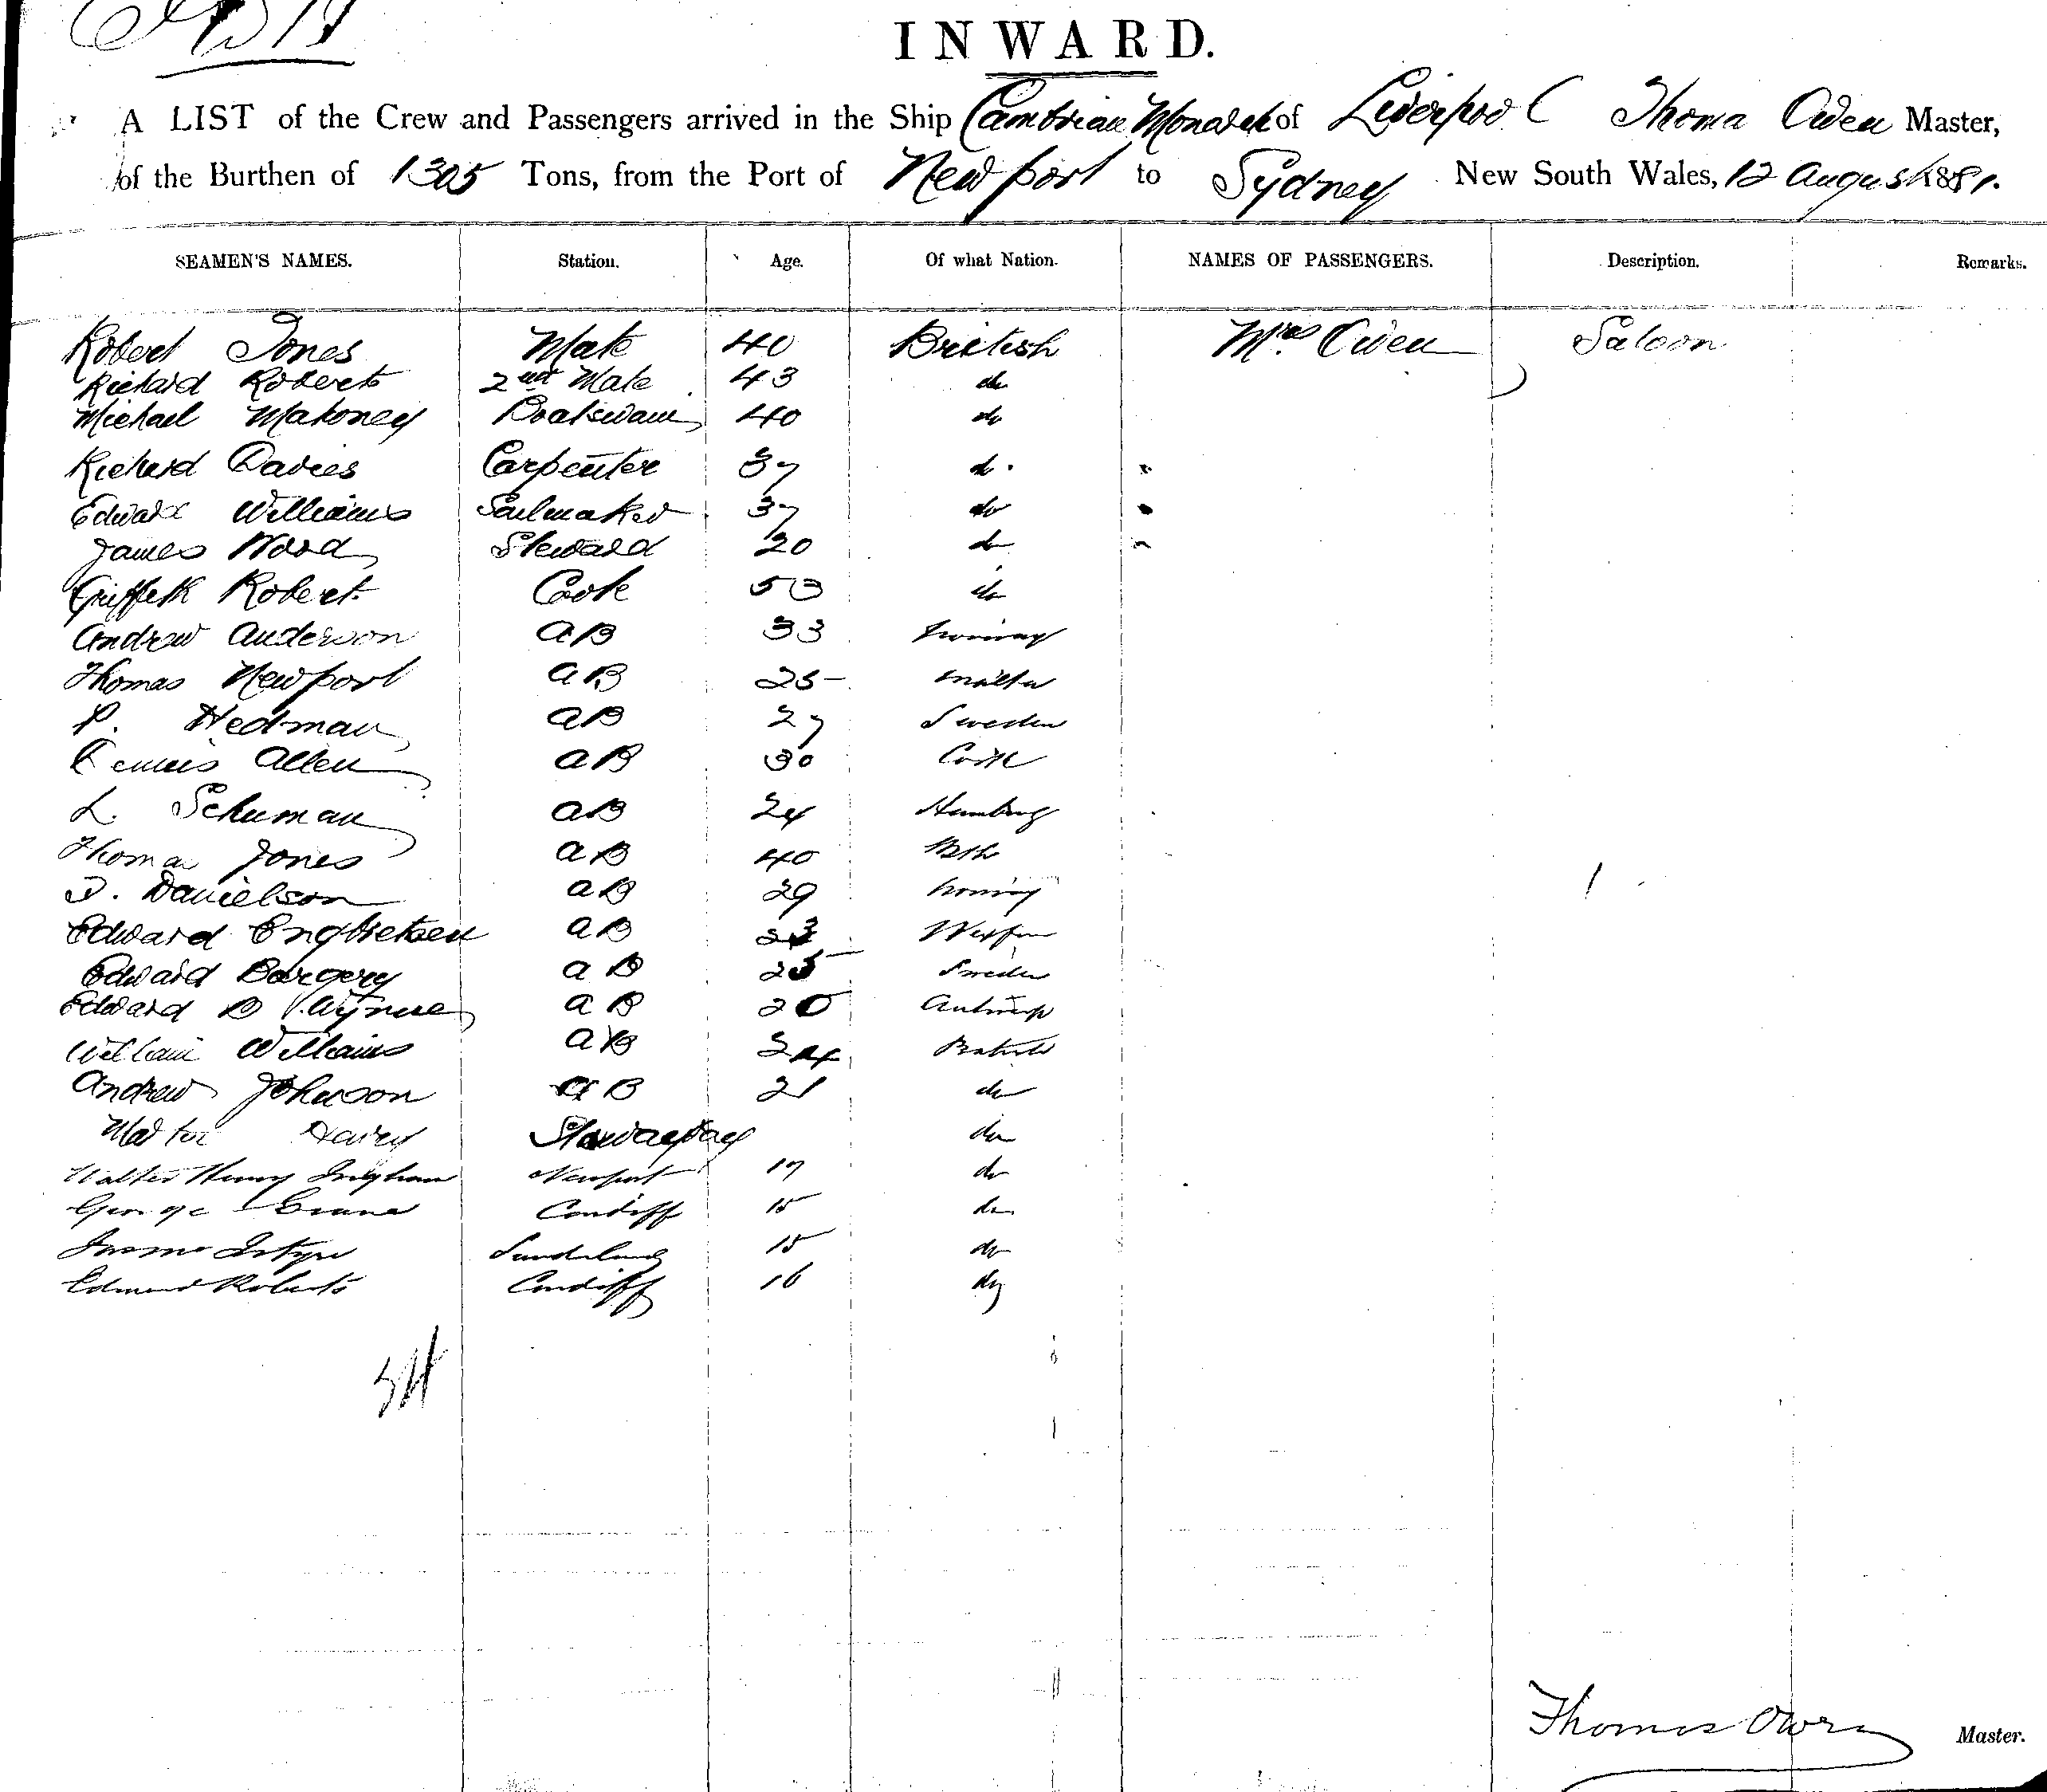 INWARD.
A LIST of the Crew and Passengers arrived in the Ship Cambrian Monarch of Liverpool Thomas Owen Master,
of the Burthen of 1305 Tons, from the Port of Newport to Sydney New South Wales, 12 August 1881.
SEAMEN'S NAMES. Station. Age. Of what Nation. NAMES OF PASSENGERS. Description. Remarks.
Robert Jones Mate 40 British Mrs. Owen Saloon
Richard Roberts 2nd Mate 43 do
Michael Mahoney Boatswain 40 do
Richard Davies Carpenter 37 do
Edward Williams Sailmaker 37 do
James Wood Steward 20 do
Griffith Robert Cook 53 do
Andrew Anderson AB 33 Norway
Thomas Newport AB 25 Malta
P. Hedman AB 27 Sweden
Dennis Allen AB 30 Cork
L. Schuman AB 24 Hamburg
Thomas Jones AB 40
Danielson AB 29 Norway
Edward Engbretsen AB 23
Edward Bargery AB 25 Sweden
Edward B Wynne AB 20 Antwerp
William Williams AB 24
Andrew Johnson AB 21 do
Stowaway do
Walter Henry Newport 17 do
George Cardiff 15 do
Sunderland 15 do
Edmund Roberts Cardiff 16 do
Thomas Owen Master.